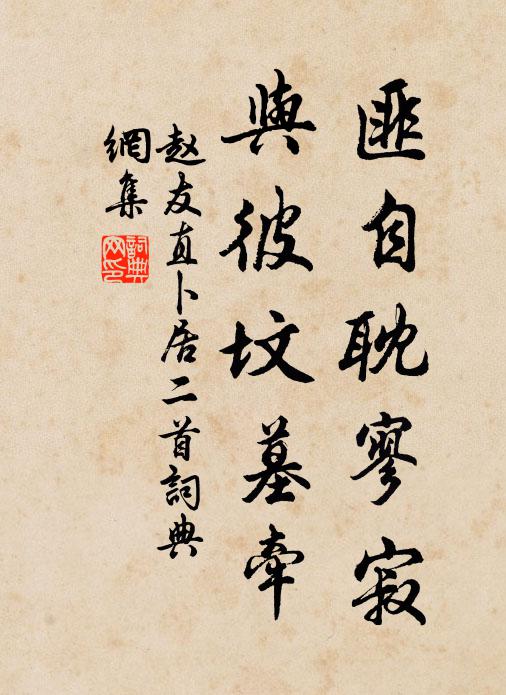 匪自耽寥寂
與彼坟墓牽
赵友直卜居二首詞典
網集
詞典
网印